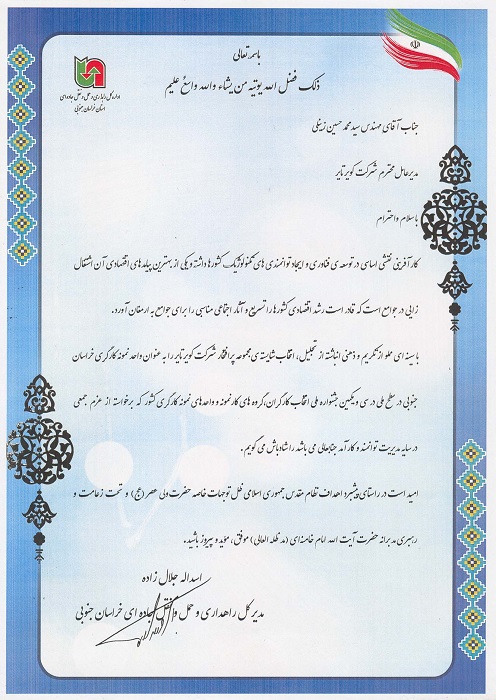 باسمه تعالی
ذلک فضل الله یوتیه من یشاء والله واسعٌ علیم
اداره کل راهداری و حمل و نقل جاده ای
استان خراسان جنوبی
جناب آقای مهندس سید محمد حسین زینلی
مدیرعامل محترم شرکت کویر تایر
با سلام و احترام
کارآفرینی نقشی اساسی در توسعه ی فناوری و ایجاد توانمندی های تکنولوژیک کشورها داشته و یکی از بهترین پیامدهای اقتصادی آن اشتغال
زایی در جوامع است که قادر است رشد اقتصادی کشورها را تسریع و آثار اجتماعی مناسبی را برای جوامع به ارمغان آورد.
با سینه ای مملو از تکریم و ذهنی انباشته از تجلیل، انتخاب شایسته ی مجموعه پرافتخار شرکت کویر تایر را به عنوان واحد نمونه کارگری خراسان
جنوبی در سطح ملی در سی و یکمین جشنواره ملی انتخاب کارگران، گروه های کار نمونه و واحدهای نمونه کارگری کشور که برخاسته از عزم جمعی
در سایه مدیریت توانمند و کارآمد جنابعالی می باشد را شادباش می گویم.
امید است در راستای پیشبرد اهداف نظام مقدس جمهوری اسلامی ظل توجهات خاصه حضرت ولی عصر (عج) و تحت زعامت و
رهبری مدبرانه حضرت آیت الله امام خامنه ای (مد ظله العالی) موفق، مؤید و پیروز باشید.
اسداله جلال زاده
مدیرکل راهداری و حمل و نقل جاده ای خراسان جنوبی